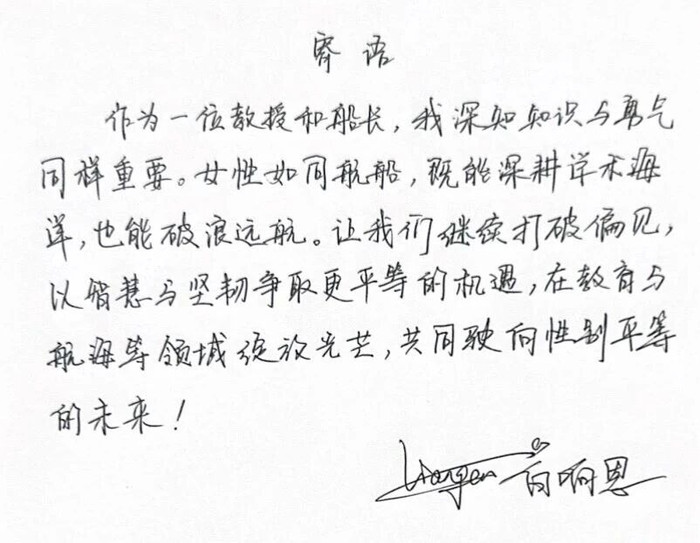 寄语
作为一位教授和船长，我深知知识与勇气
同样重要。女性如同航船，既能深耕学术海
洋，也能破浪远航。让我们继续打破偏见，
以智慧与坚韧争取更平等的机遇，在教育与
航海等领域绽放光芒，共同驶向性别平等
的未来！
白响恩